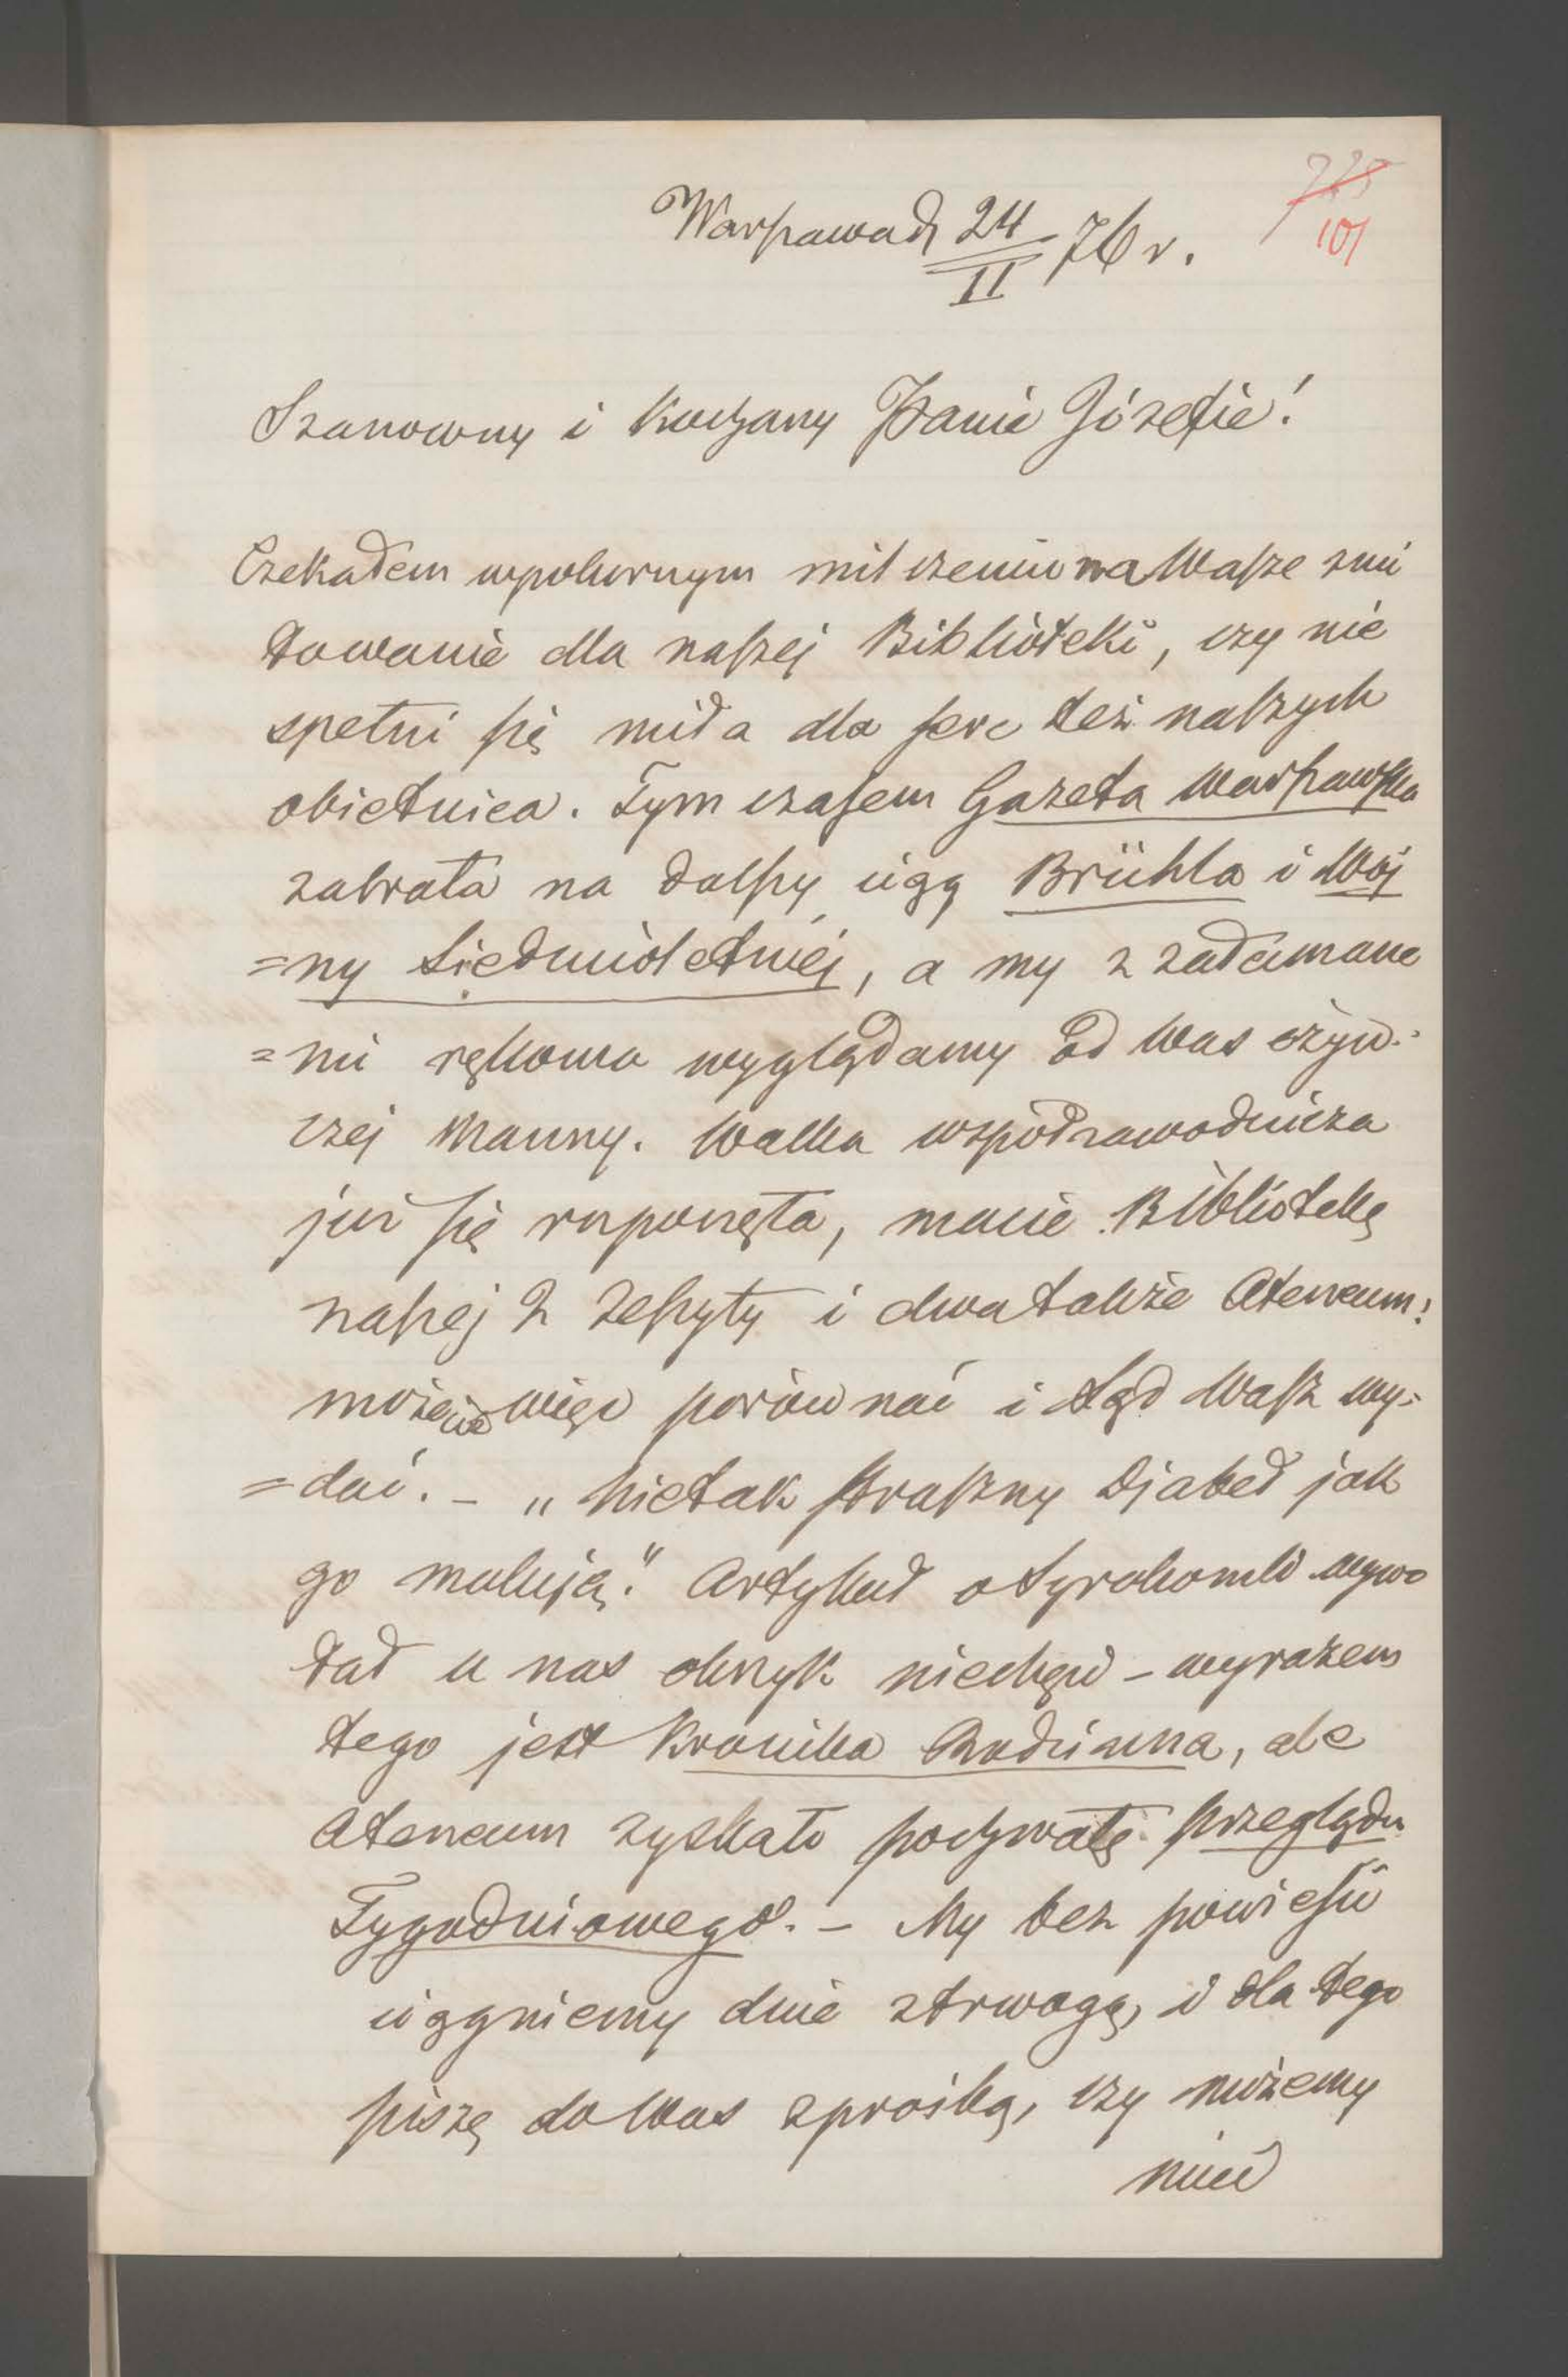 725
101
Warszawa d 24/II 76 r.
Szanowny i Kochany Panie Józefie!
Czekałem w pokornym milczeniu na Wasze zmi
łowanie dla naszej Biblioteki, czy nie
spełni się miła dla serc też naszych
obietnica. Tym czasem Gazeta Warszawska
zabrała na dalszy ciąg Brühla i Woj
=ny Siedmioletniej, a my z załamane
=mi rękoma wyglądamy od Was ożyw=
czej Manny. Walka współzawodnicza
już się rozpoczęła, macie Bibliotekę
naszej 2 zeszyty i dwa także Ateneum:
możecie więc porównać i sąd Wasz wy=
=dać. – „Nie tak straszny Djabeł jak
go malują." Artykuł o Syrokomli wywo
łał u nas okrzyk niechęci – wyrazem
tego jest Kronika Rodzinna, ale
Ateneum zyskało pochwałę Przeglądu
Tygodniowego. – My bez powieści
ciągniemy dnie z trwogą, i dla tego
piszę do Was z prośbą, czy możemy
mieć